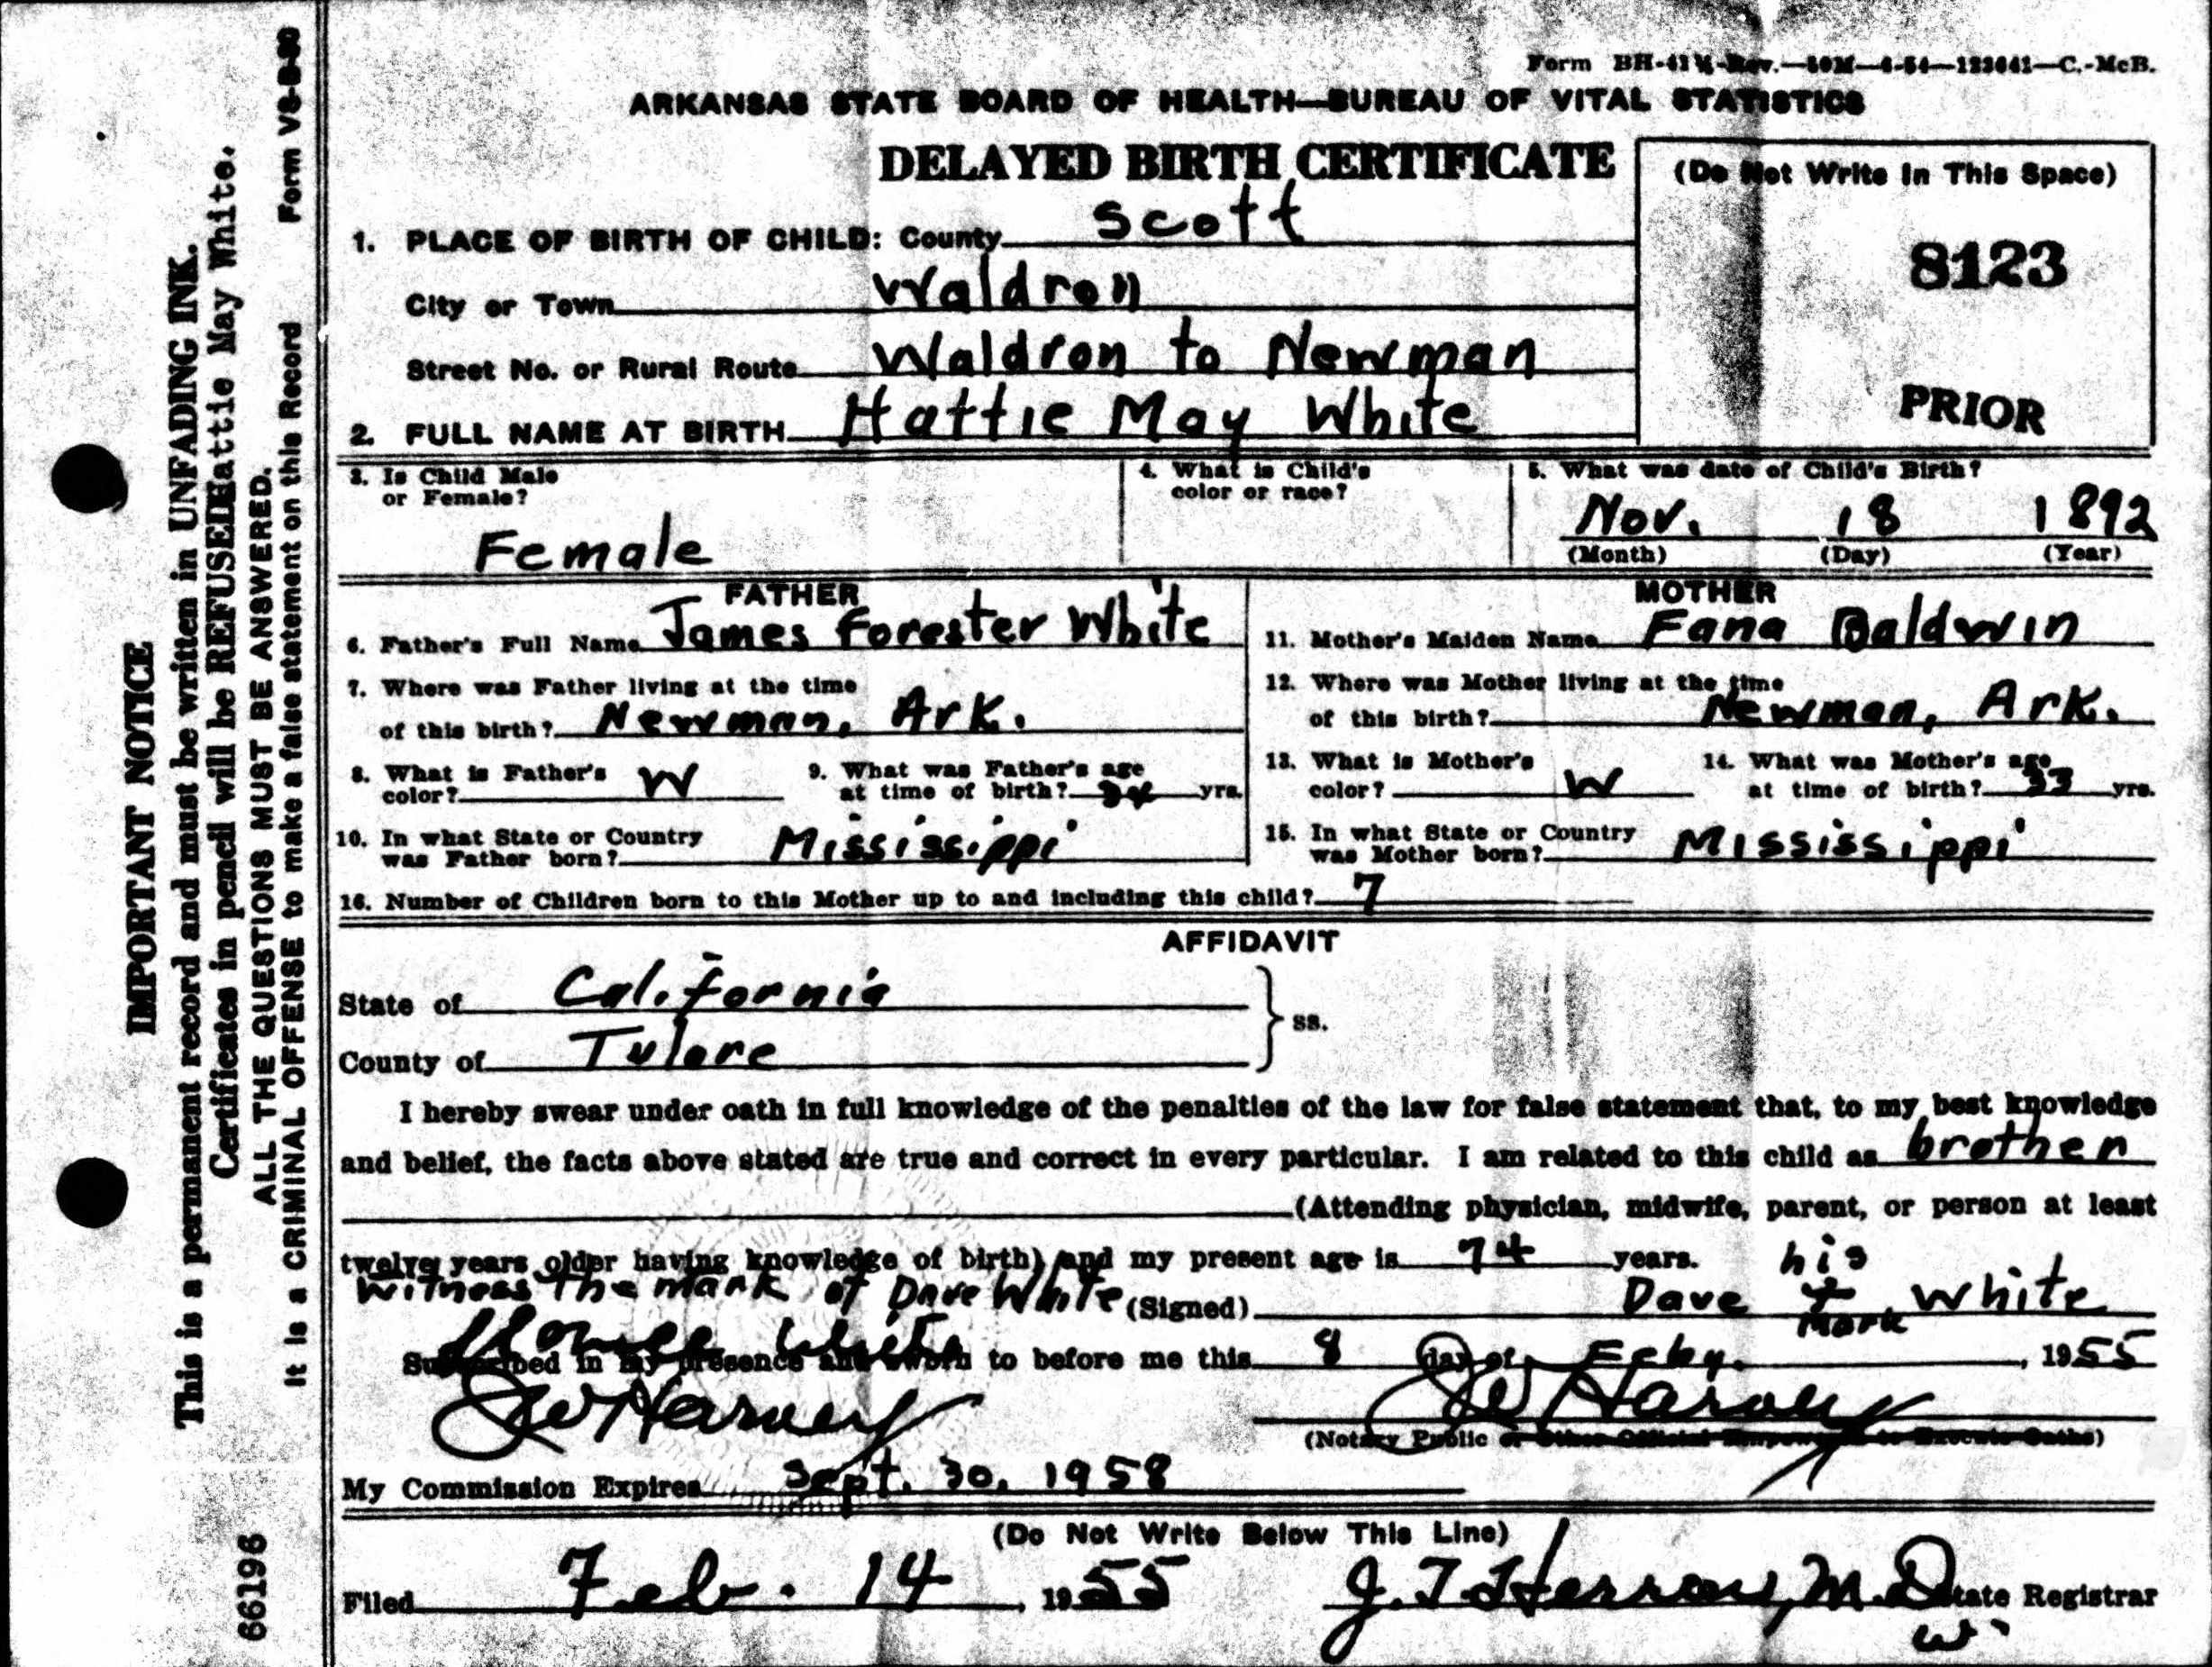 Form BH-41½-Rev.—50M—6-54—123641—C.-McB.
ARKANSAS STATE BOARD OF HEALTH—BUREAU OF VITAL STATISTICS
DELAYED BIRTH CERTIFICATE
(Do Not Write In This Space)
8123
PRIOR
1. PLACE OF BIRTH OF CHILD: County Scott
City or Town Waldron
Street No. or Rural Route Waldron to Newman
2. FULL NAME AT BIRTH Hattie May White
3. Is Child Male or Female? Female
4. What is Child's color or race?
5. What was date of Child's Birth?
Nov. 18 1892
(Month) (Day) (Year)
FATHER
6. Father's Full Name James Forester White
7. Where was Father living at the time
of this birth? Newman, Ark.
8. What is Father's color? W
9. What was Father's age at time of birth? yrs.
10. In what State or Country was Father born? Mississippi
MOTHER
11. Mother's Maiden Name Fana Baldwin
12. Where was Mother living at the time
of this birth? Newman, Ark.
13. What is Mother's color? W
14. What was Mother's age at time of birth? 33 yrs.
15. In what State or Country was Mother born? Mississippi
16. Number of Children born to this Mother up to and including this child? 7
AFFIDAVIT
State of California
County of Tulare
} ss.
I hereby swear under oath in full knowledge of the penalties of the law for false statement that, to my best knowledge
and belief, the facts above stated are true and correct in every particular. I am related to this child as brother
(Attending physician, midwife, parent, or person at least
twelve years older having knowledge of birth) and my present age is 74 years.
Witness the mark of Dave White (Signed) Dave his x mark White
White
Subscribed in my presence and sworn to before me this 8 day of Feby. , 1955
JW Harvey JW Harvey
(Notary Public or Other Official Empowered to Execute Oaths)
My Commission Expires Sept. 30, 1958
(Do Not Write Below This Line)
Filed Feb. 14, 1955 J. T. Herron, M.D. State Registrar
w
IMPORTANT NOTICE
This is a permanent record and must be written in UNFADING INK.
Certificates in pencil will be REFUSED Hattie May White.
ALL THE QUESTIONS MUST BE ANSWERED.
It is a CRIMINAL OFFENSE to make a false statement on this Record Form VS-B-30
66196